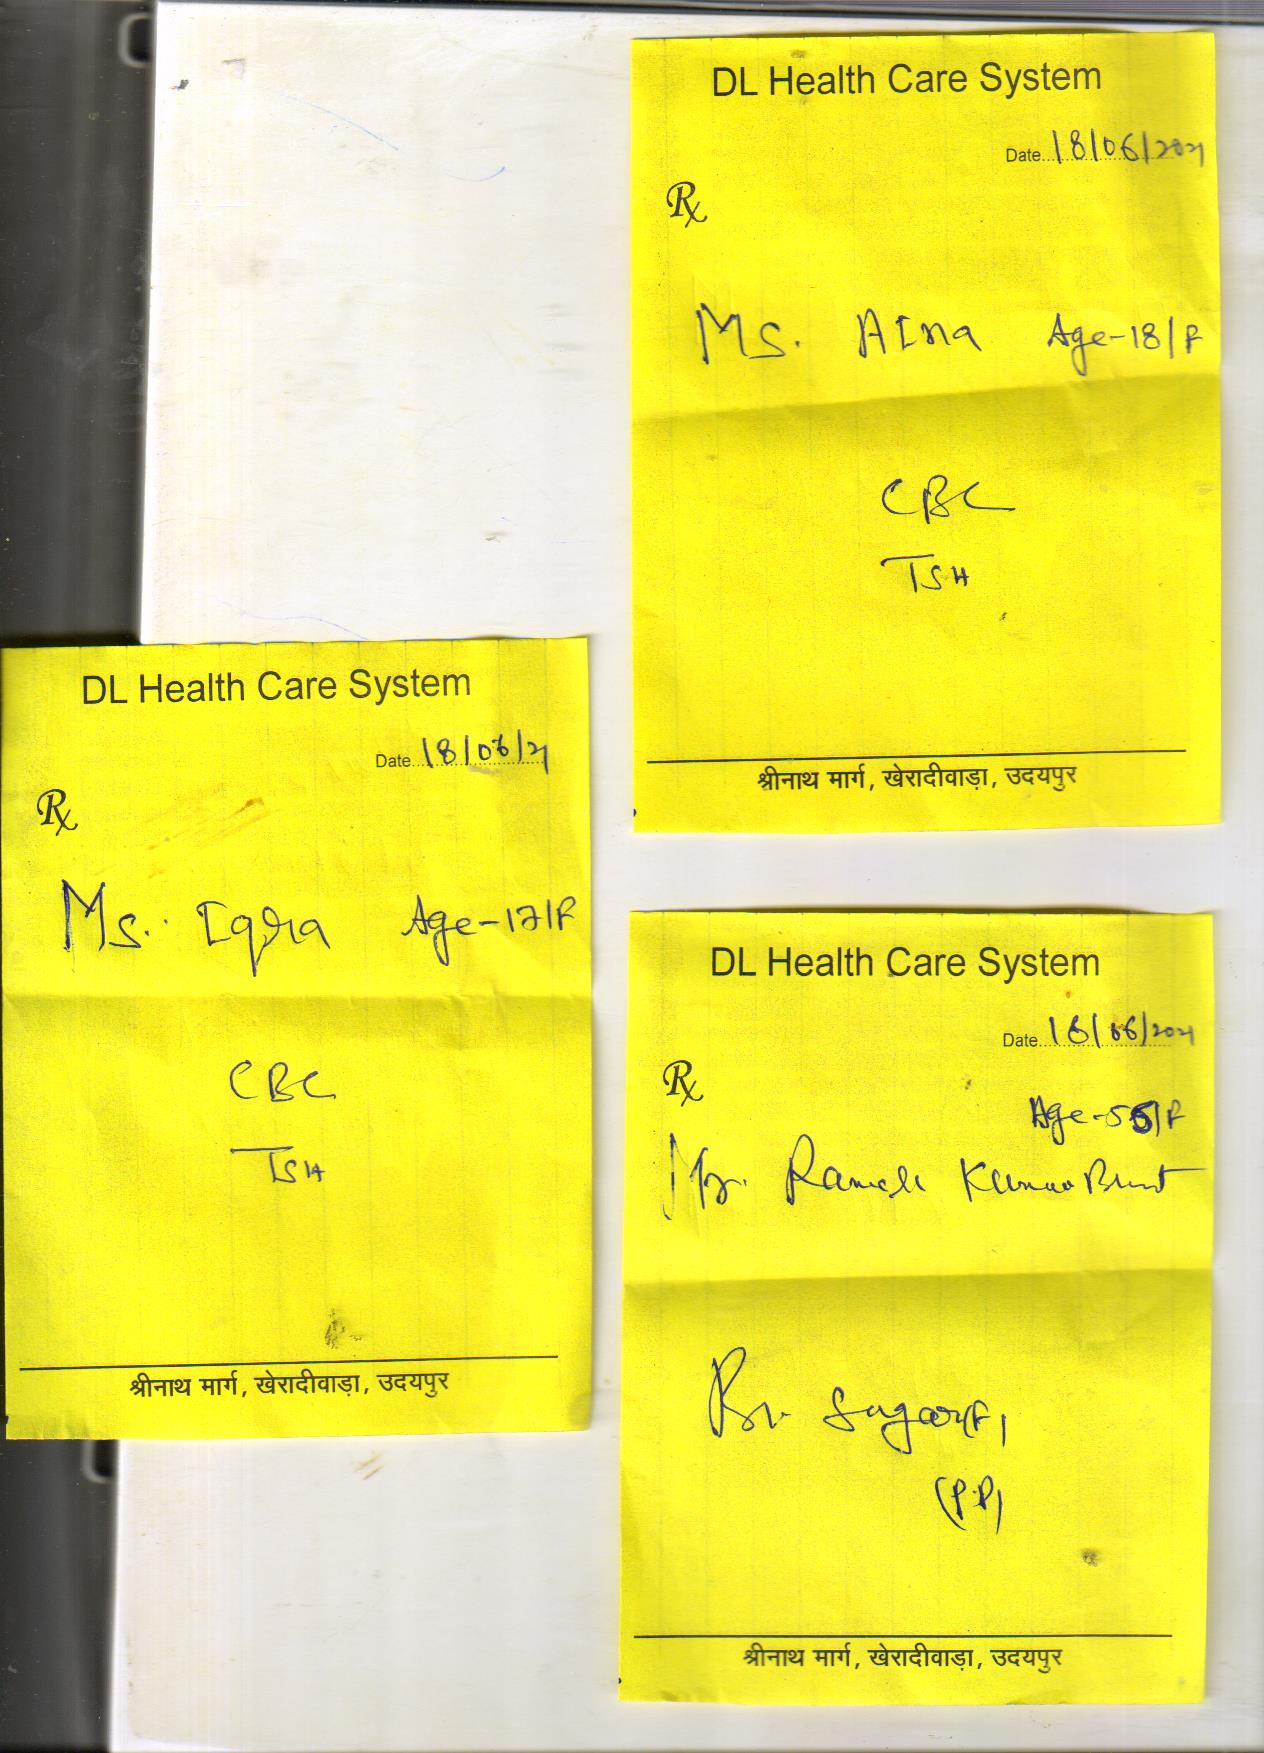 DL Health Care System
Date 18/06/2021
Rx
Ms. AIna Age-18/F
CBC
TSH
श्रीनाथ मार्ग, खेरादीवाड़ा, उदयपुर
DL Health Care System
Date 18/06/21
Rx
Ms. Iqra Age-17/F
CBC
TSH
श्रीनाथ मार्ग, खेरादीवाड़ा, उदयपुर
DL Health Care System
Date 18/06/2021
Rx
Age-55/F
Kumar
Sugar (F)
(P.P)
श्रीनाथ मार्ग, खेरादीवाड़ा, उदयपुर